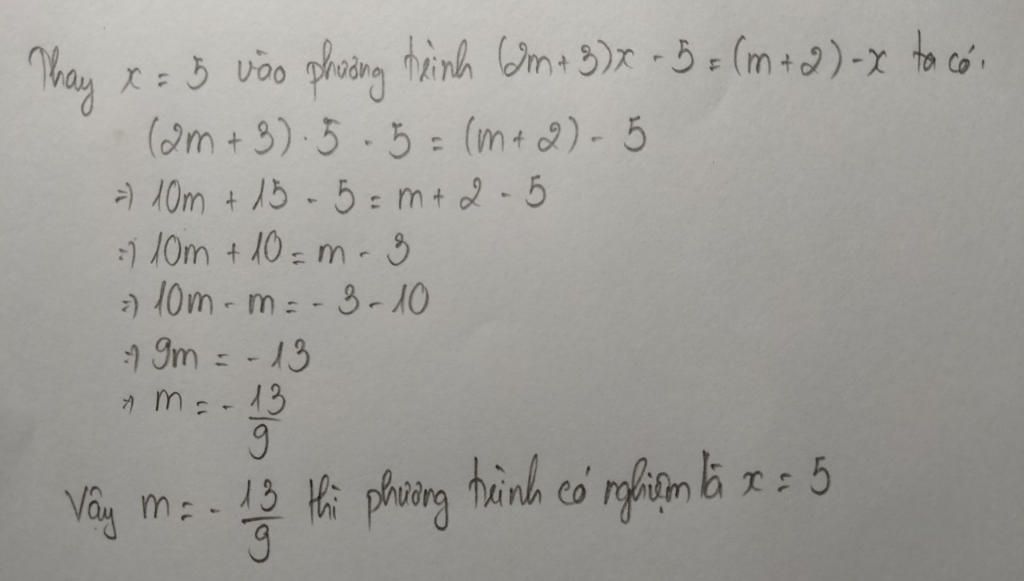 Thay x = 5 vào phương trình (2m+3)x - 5 = (m+2) - x ta có.
(2m + 3) . 5 - 5 = (m + 2) - 5
=) 10m + 15 - 5 = m + 2 - 5
=) 10m + 10 = m - 3
=) 10m - m = - 3 - 10
=) 9m = - 13
=) m = - 13/9
Vậy m = - 13/9 thì phương trình có nghiệm là x = 5